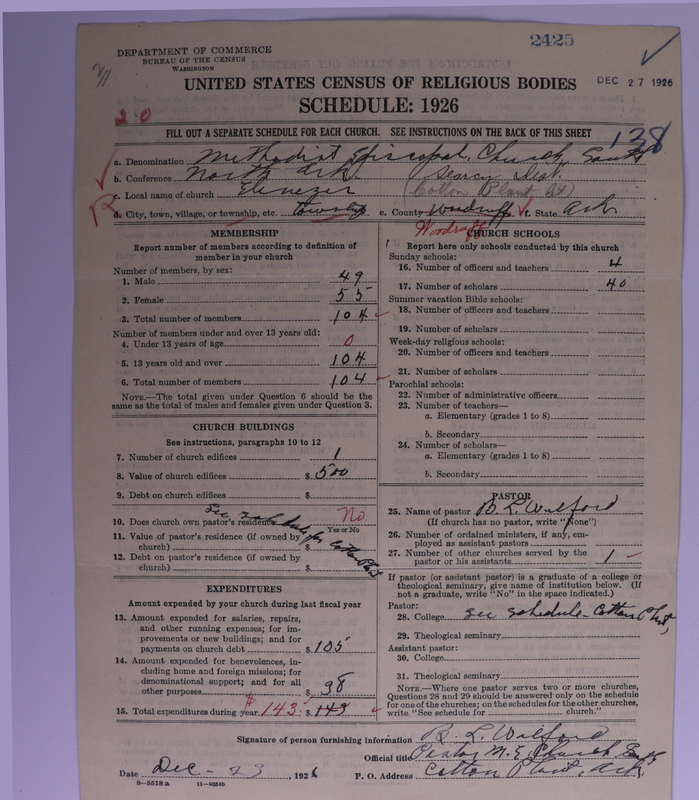 2425
DEPARTMENT OF COMMERCE
BUREAU OF THE CENSUS
WASHINGTON
UNITED STATES CENSUS OF RELIGIOUS BODIES
DEC 27 1926
SCHEDULE: 1926
2.0
FILL OUT A SEPARATE SCHEDULE FOR EACH CHURCH. SEE INSTRUCTIONS ON THE BACK OF THIS SHEET
138
a. Denomination Methodist Episcopal Church, South
b. Conference North Ark. Searcy Dist.
c. Local name of church Ebenezer (Cotton Plant Ct)
d. City, town, village, or township, etc. e. County Woodruff f. State Ark
Woodruff
MEMBERSHIP
Report number of members according to definition of member in your church
Number of members, by sex:
1. Male 49
2. Female 55
3. Total number of members 104
Number of members under and over 13 years old:
4. Under 13 years of age 0
5. 13 years old and over 104
6. Total number of members 104
NOTE.—The total given under Question 6 should be the
same as the total of males and females given under Question 3.
CHURCH BUILDINGS
See instructions, paragraphs 10 to 12
7. Number of church edifices 1
8. Value of church edifices $ 500
9. Debt on church edifices $
See schedule for Cotton Plant
10. Does church own pastor's residence No
Yes or No
11. Value of pastor's residence (if owned by
church) $
12. Debt on pastor's residence (if owned by
church) $
EXPENDITURES
Amount expended by your church during last fiscal year
13. Amount expended for salaries, repairs,
and other running expenses; for im-
provements or new buildings; and for
payments on church debt $ 105
14. Amount expended for benevolences, in-
cluding home and foreign missions; for
denominational support; and for all
other purposes 38
15. Total expenditures during year $ 143 $ 143
CHURCH SCHOOLS
Report here only schools conducted by this church
Sunday schools:
16. Number of officers and teachers 4
17. Number of scholars 40
Summer vacation Bible schools:
18. Number of officers and teachers
19. Number of scholars
Week-day religious schools:
20. Number of officers and teachers
21. Number of scholars
Parochial schools:
22. Number of administrative officers
23. Number of teachers—
a. Elementary (grades 1 to 8)
b. Secondary
24. Number of scholars—
a. Elementary (grades 1 to 8)
b. Secondary
PASTOR
25. Name of pastor B. L. Wilford
(If church has no pastor, write "None")
26. Number of ordained ministers, if any, em-
ployed as assistant pastors
27. Number of other churches served by the
pastor or his assistants 1
If pastor (or assistant pastor) is a graduate of a college or
theological seminary, give name of institution below. (If
not a graduate, write "No" in the space indicated.)
Pastor:
28. College see schedule - Cotton Plant,
29. Theological seminary
Assistant pastor:
30. College
31. Theological seminary
NOTE.—Where one pastor serves two or more churches,
Questions 28 and 29 should be answered only on the schedule
for one of the churches; on the schedules for the other churches,
write "See schedule for church."
Signature of person furnishing information B. L. Wilford
Official title Pastor M. E. Church South
Date Dec - 23, 1926 P. O. Address Cotton Plant, Ark
8—5518 a